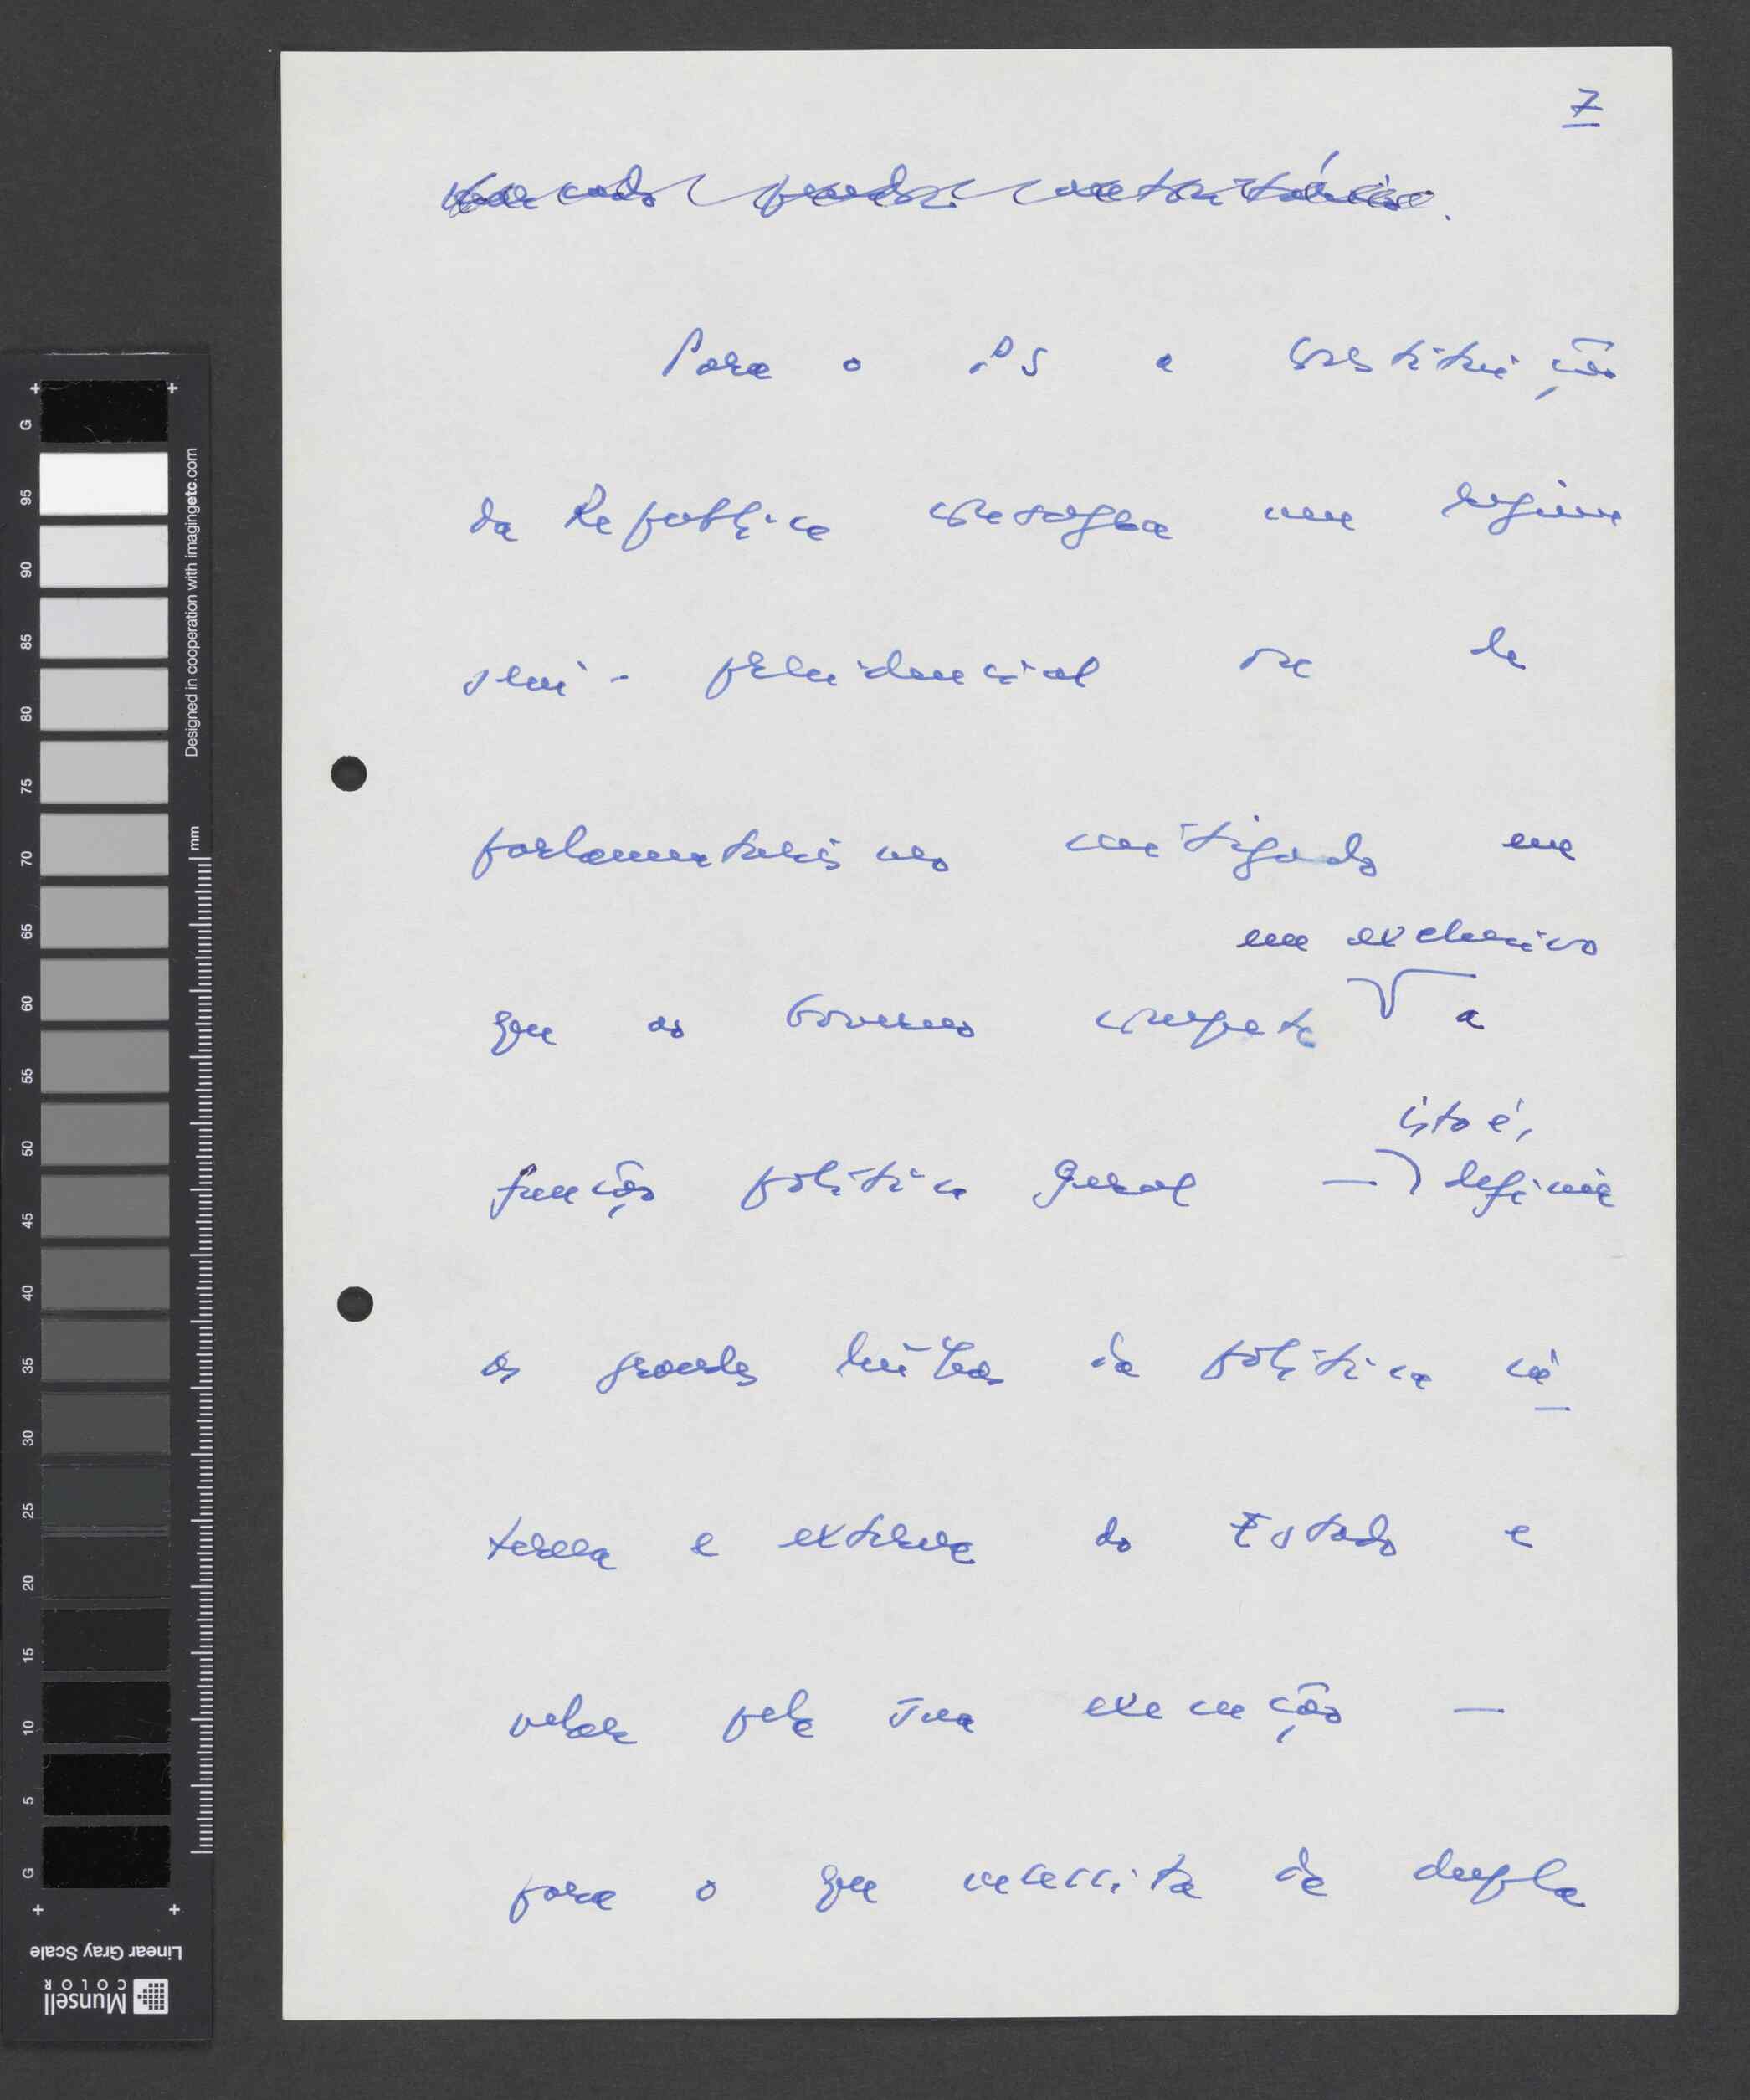 7
Para o PS a Constituição
da República consagra um regime
semi-presidencial ou de
parlamentarismo mitigado em
em exclusivo
que ao Governo compete a
isto é,
função política geral — definir
as grandes linhas da política in
terna e externa do Estado e
velar pela sua execução —
para o que necessita da dupla
G
95
90
85
80
75
70
65
60
55
50
45
40
35
30
25
20
15
10
5
G
Designed in cooperation with imagingetc.com
mm
Linear Gray Scale
Munsell
COLOR